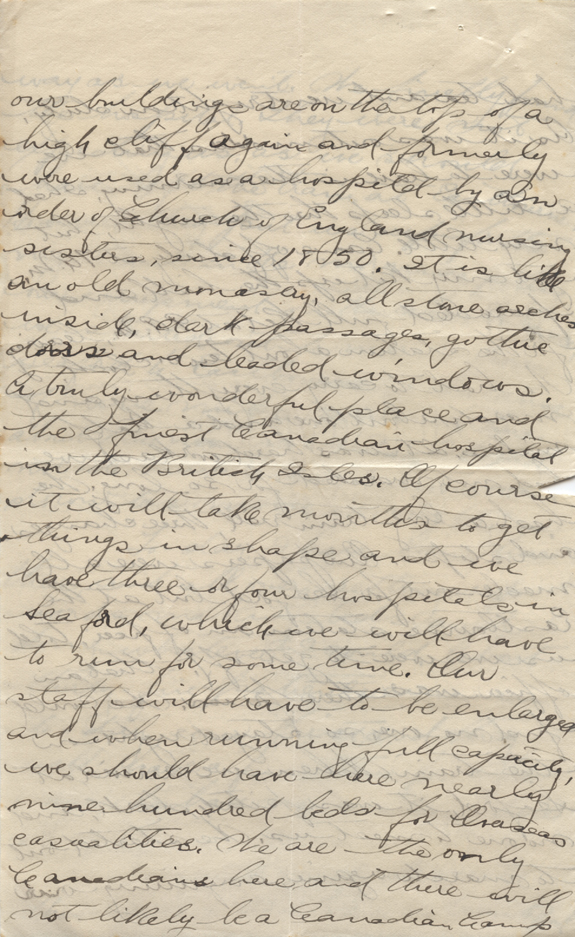 our buildings are on the top of a
high cliff again and formerly
were used as a hospital by an
order of Church of England nursing
sisters, since 1850. It is like
an old monasay, all stone arches
inside, dark passages, gothic
doors and leaded windows.
A truly wonderful place and
the finest Canadian hospital
in the British Isles. Of course
it will take months to get
things in shape and we
have three or four hospitals in
Seaford, which we will have
to run for some time. Our
staff will have to be enlarged
and when running full capacity,
we should have here nearly
nine hundred beds for Overseas
casualities. We are the only
Canadians here and there will
not likely be a Canadian Camp